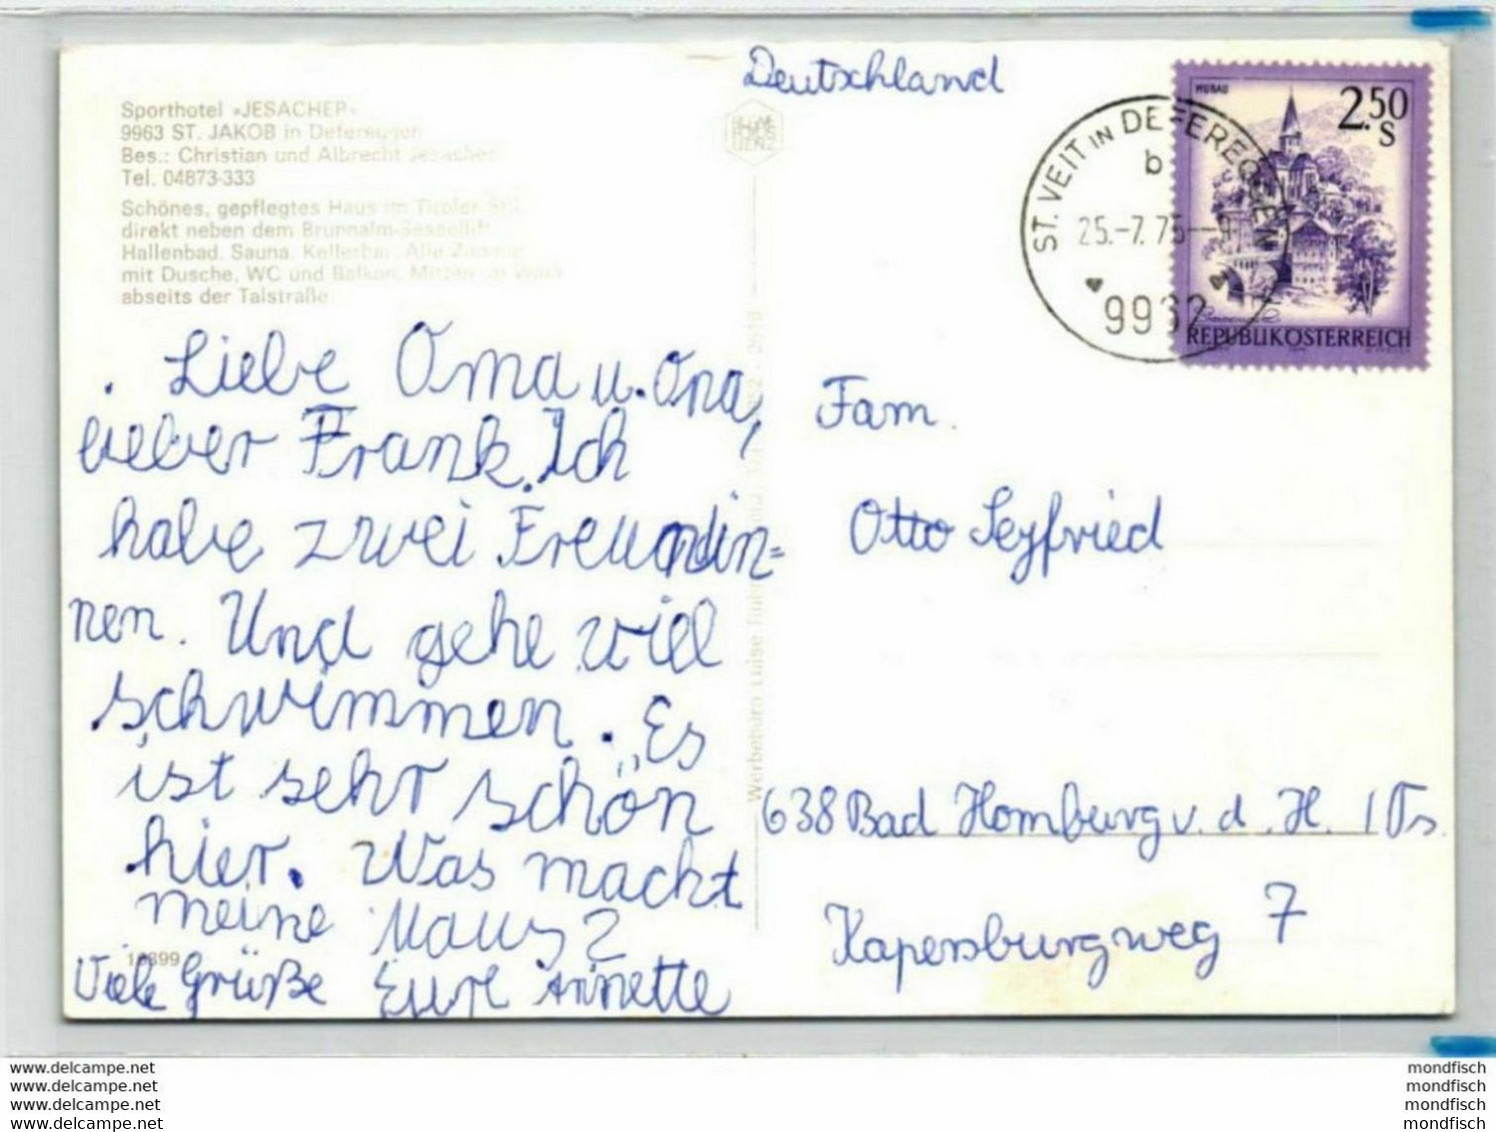 Sporthotel »JESACHER«
9963 ST. JAKOB in Defereggen
Bes.: Christian und Albrecht Jesacher
Tel. 04873-333
Schönes, gepflegtes Haus im Tiroler Stil,
direkt neben dem Brunnalm-Sessellift
Hallenbad, Sauna, Kellerbar. Alle Zimmer
mit Dusche, WC und Balkon. Mitten im Wald
abseits der Talstraße
Liebe Oma u. Opa,
lieber Frank. Ich
habe zwei Freundin=
nen. Und gehe viel
schwimmen. „Es
ist sehr schön
hier. Was macht
meine Maus?
Viele Grüße Eure Annette
18399
Werbebüro Luise
Deutschland
ST. VEIT in DEFEREGGEN
b
25.-7.75
9962
MURAU
2.50
S
REPUBLIK ÖSTERREICH
Fam.
Otto Seyfried
638 Bad Homburg v. d. H. / Ts.
Kapersburgweg 7
www.delcampe.net
www.delcampe.net
www.delcampe.net
www.delcampe.net
mondfisch
mondfisch
mondfisch
mondfisch